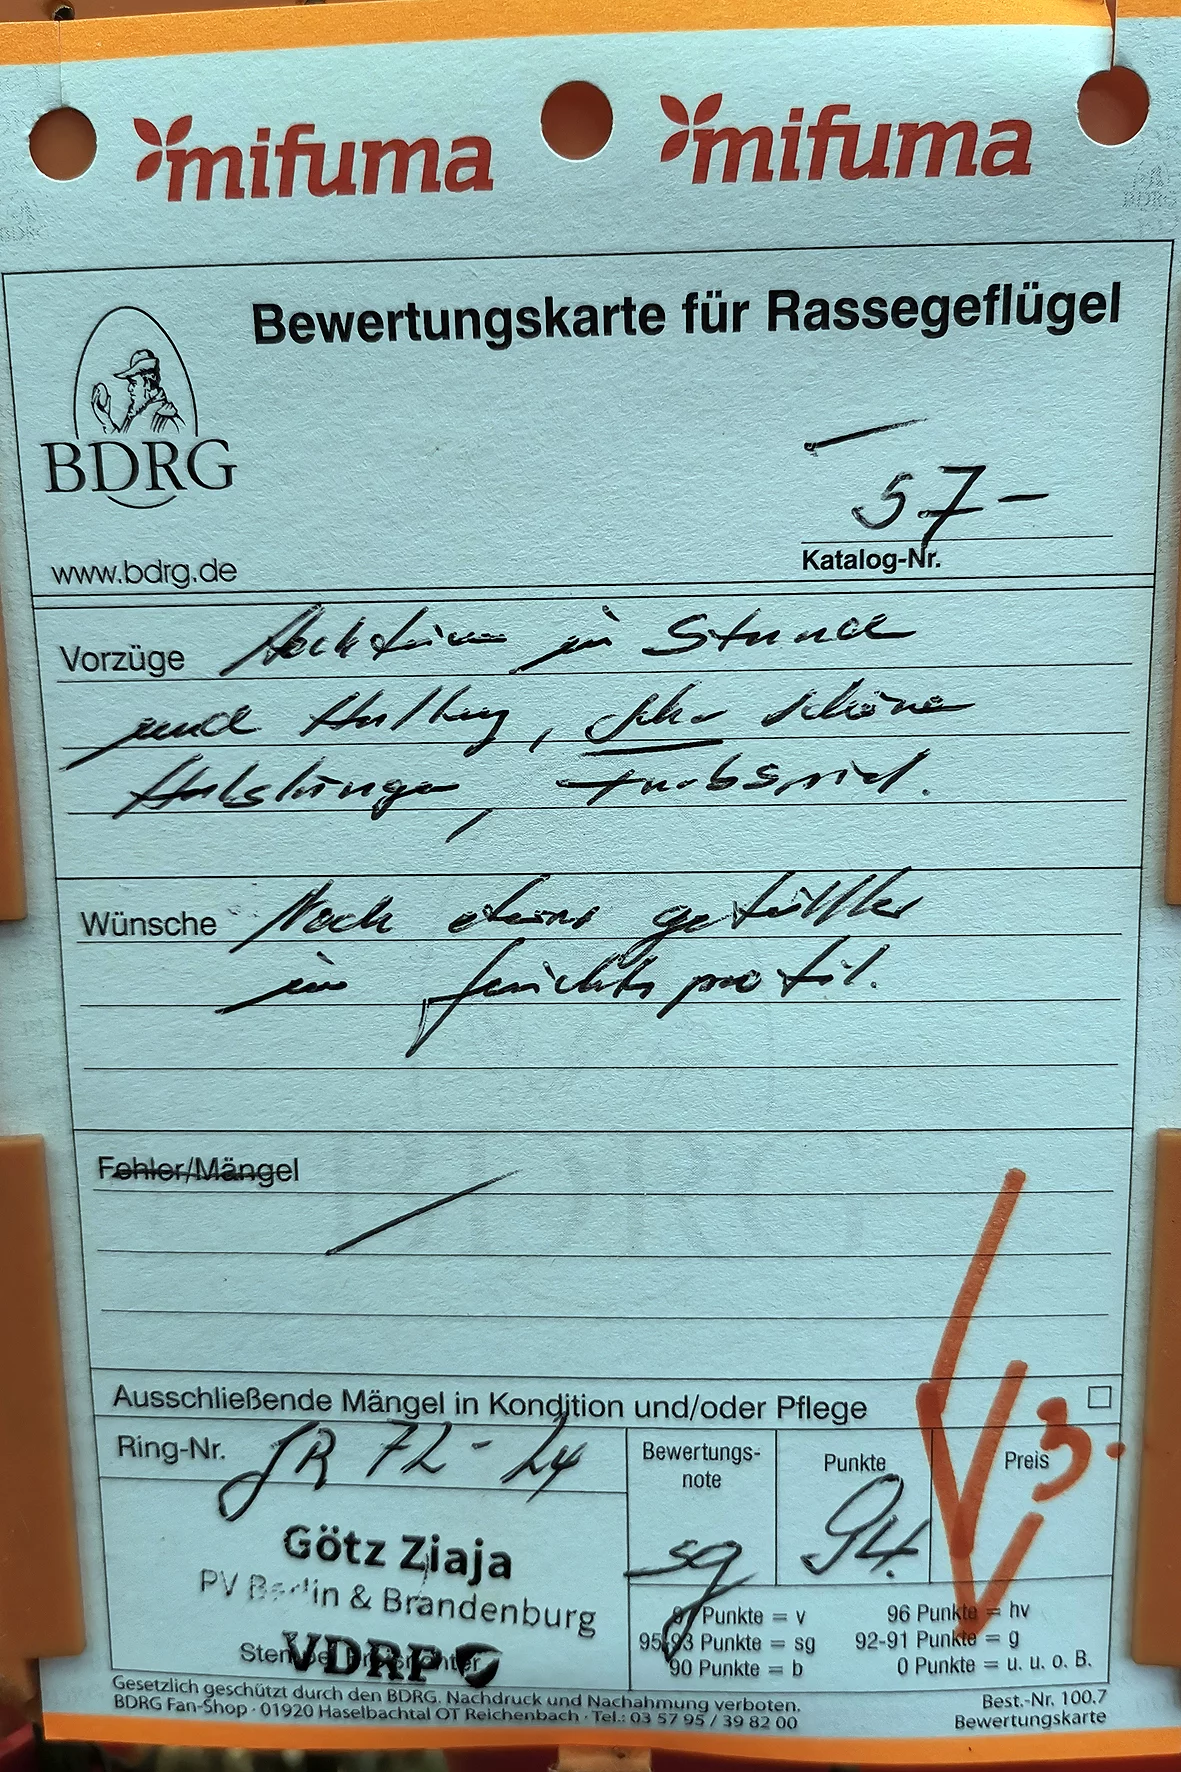 mifuma mifuma
Bewertungskarte für Rassegeflügel
BDRG
57-
Katalog-Nr.
www.bdrg.de
Vorzüge Hochfein in Stand
und Haltung, sehr schöne
Halslänge, Farbspiel.
Wünsche Noch etwas gefüllter
im Gesichtsprofil.
Fehler/Mängel
Ausschließende Mängel in Kondition und/oder Pflege
Ring-Nr. 72-24
Bewertungs-
note
sg
Punkte
94.
Preis 3.
Götz Ziaja
PV Berlin & Brandenburg
VDRP
97 Punkte = v 96 Punkte = hv
95-93 Punkte = sg 92-91 Punkte = g
90 Punkte = b 0 Punkte = u. u. o. B.
Gesetzlich geschützt durch den BDRG. Nachdruck und Nachahmung verboten.
BDRG Fan-Shop · 01920 Haselbachtal OT Reichenbach · Tel.: 03 57 95 / 39 82 00
Best.-Nr. 100.7
Bewertungskarte